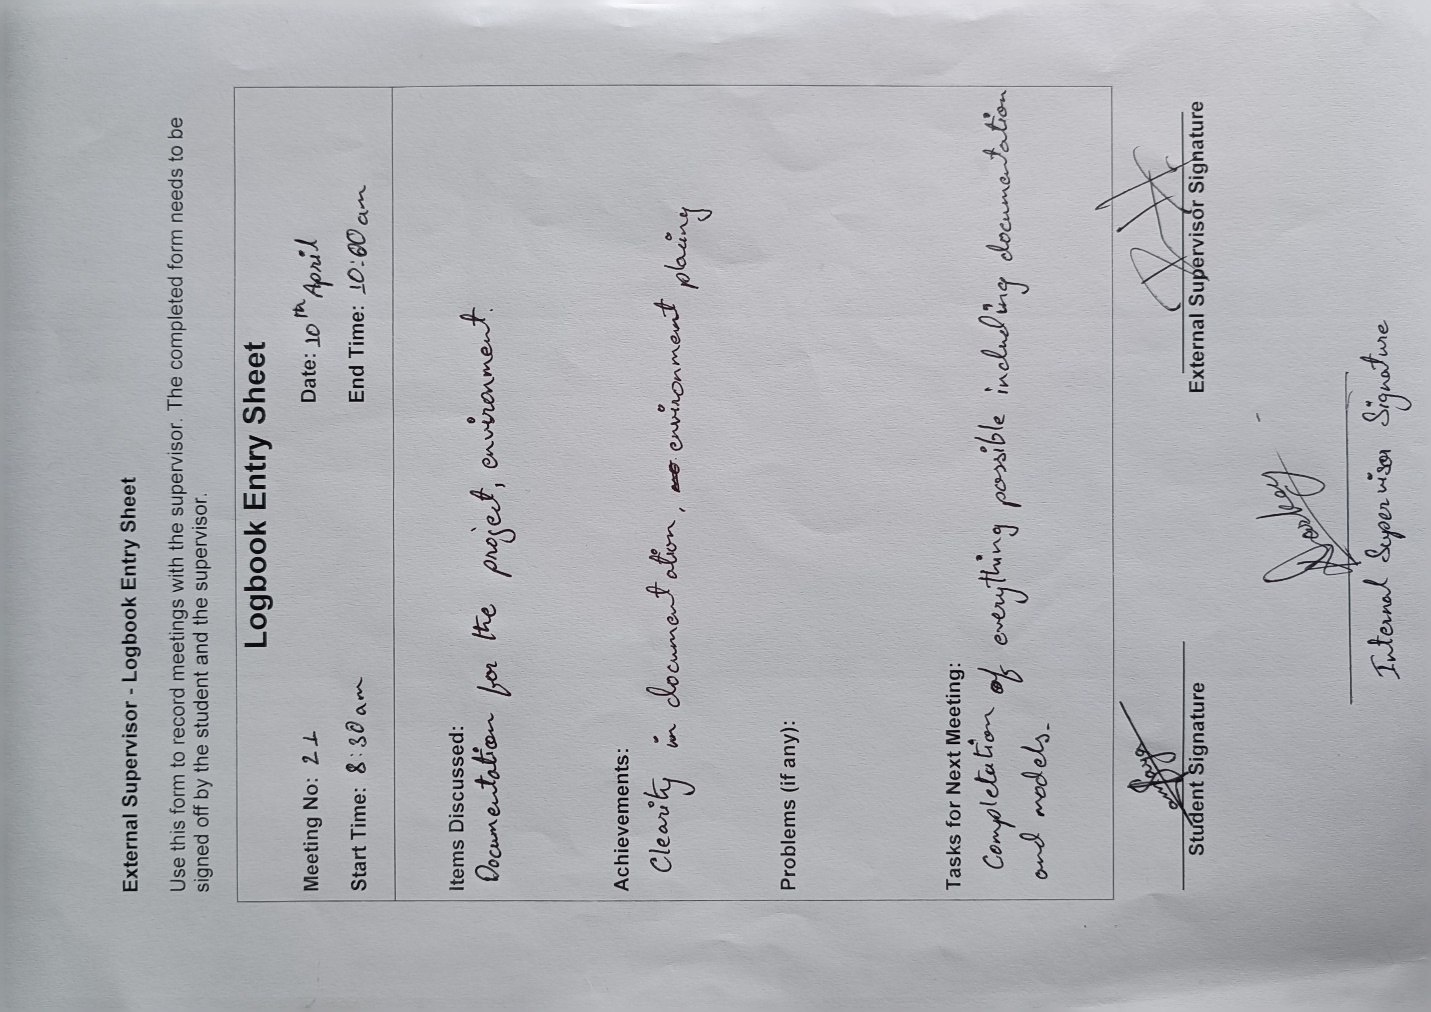 External Supervisor - Logbook Entry Sheet
Use this form to record meetings with the supervisor. The completed form needs to be
signed off by the student and the supervisor.
Logbook Entry Sheet
Meeting No: 21 Date: 10th April
Start Time: 8:30 am End Time: 10:00 am
Items Discussed:
Documentation for the project, environment.
Achievements:
Clearity in documentation, environment placing
Problems (if any):
Tasks for Next Meeting:
Completation of everything possible including documentation
and models.
Student Signature External Supervisor Signature
Internal Supervisor Signature